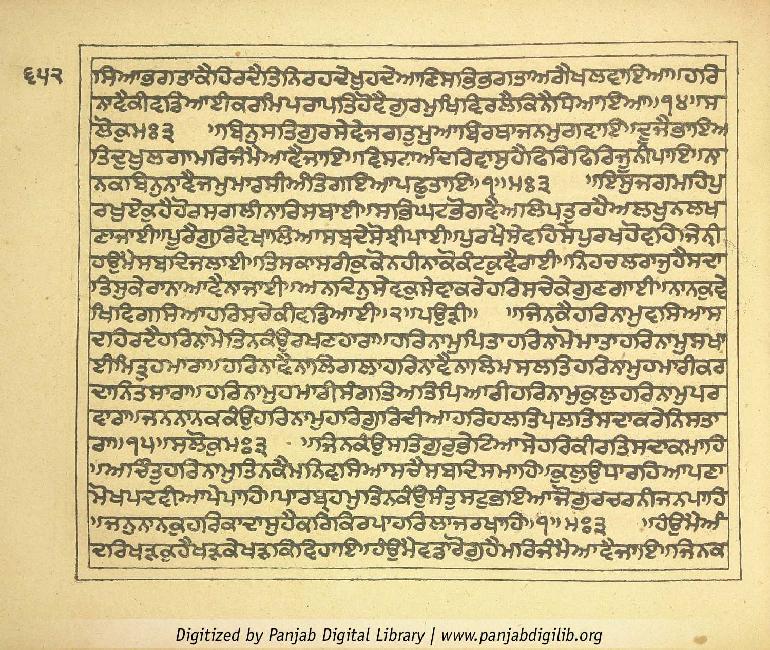 ੬੫੨
ਸਿਆਭਗਤਾਕੈਹਿਰਦੈਤਿਨਿਰਹਦੇਖੁਹਦੇਆਣਿਸਭਿਭਗਤਾਅਗੈਖਲਵਾਇਆ॥ਹਰਿ
ਨਾਵੈਕੀਵਡਿਆਈਕਰਮਿਪਰਾਪਤਿਹੋਵੈਗੁਰਮੁਖਿਵਿਰਲੈਕਿਨੈਧਿਆਇਆ॥੧੪॥ਸ
ਲੋਕੁਮਃ੩ ॥ਬਿਨੁਸਤਿਗੁਰਸੇਵੇਜਗਤੁਮੁਆਬਿਰਥਾਜਨਮੁਗਵਾਇ॥ਦੂਜੈਭਾਇਅ
ਤਿਦੁਖੁਲਗਾਮਰਿਜੰਮੈਆਵੈਜਾਇ॥ਵਿਸਟਾਅੰਦਰਿਵਾਸੁਹੈਫਿਰਿਫਿਰਿਜੂਨੀਪਾਇ॥ਨਾ
ਨਕਬਿਨੁਨਾਵੈਜਮੁਮਾਰਸੀਅੰਤਿਗਇਆਪਛੁਤਾਇ॥੧॥ਮਃ੩ ॥ਇਸੁਜਗਮਹਿਪੁ
ਰਖੁਏਕੁਹੈਹੋਰਸਗਲੀਨਾਰਿਸਬਾਈ॥ਸਭਿਘਟਭੋਗਵੈਅਲਿਪਤੁਰਹੈਅਲਖੁਨਲਖ
ਣਾਜਾਈ॥ਪੂਰੈਗੁਰਿਵੇਖਾਲਿਆਸਬਦੇਸੋਝੀਪਾਈ॥ਪੁਰਖੈਸੇਵਹਿਸੇਪੁਰਖਹੋਵਹਿਜਿਨੀ
ਹਉਮੈਸਬਦਿਜਲਾਈ॥ਤਿਸਕਾਸਰੀਕੁਕੋਨਹੀਨਾਕੋਕੰਟਕੁਵੈਰਾਈ॥ਨਿਹਚਲਰਾਜੁਹੈਸਦਾ
ਤਿਸੁਕੇਰਾਨਾਆਵੈਨਾਜਾਈ॥ਅਨਦਿਨੁਸੇਵਕੁਸੇਵਾਕਰੇਹਰਿਸਚੇਕੇਗੁਣਗਾਈ॥ਨਾਨਕੁਵੇ
ਖਿਵਿਗਸਿਆਹਰਿਸਚੇਕੀਵਡਿਆਈ॥੨॥ਪਉੜੀ॥ ॥ਜਿਨਕੈਹਰਿਨਾਮੁਵਸਿਆਸ
ਦਾਹਿਰਦੈਹਰਿਨਾਮੋਤਿਨਕੰਉਰਖਣਹਾਰਾ॥ਹਰਿਨਾਮੁਪਿਤਾਹਰਿਨਾਮੋਮਾਤਾਹਰਿਨਾਮੁਸਖਾ
ਈਮਿਤ੍ਰੁਹਮਾਰਾ॥ਹਰਿਨਾਵੈਨਾਲਿਗਲਾਹਰਿਨਾਵੈਨਾਲਿਮਸਲਤਿਹਰਿਨਾਮੁਹਮਾਰੀਕਰ
ਦਾਨਿਤਸਾਰਾ॥ਹਰਿਨਾਮੁਹਮਾਰੀਸੰਗਤਿਅਤਿਪਿਆਰੀਹਰਿਨਾਮੁਕੁਲੁਹਰਿਨਾਮੁਪਰ
ਵਾਰਾ॥ਜਨਨਾਨਕਕੰਉਹਰਿਨਾਮੁਹਰਿਗੁਰਿਦੀਆਹਰਿਹਲਤਿਪਲਤਿਸਦਾਕਰੇਨਿਸਤਾ
ਰਾ॥੧੫॥ਸਲੋਕੁਮਃ੩ ॥ਜਿਨਕੰਉਸਤਿਗੁਰੁਭੇਟਿਆਸੇਹਰਿਕੀਰਤਿਸਦਾਕਮਾਹਿ
॥ਅਚਿੰਤੁਹਰਿਨਾਮੁਤਿਨਕੈਮਨਿਵਸਿਆਸਚੈਸਬਦਿਸਮਾਹਿ॥ਕੁਲੁਉਧਾਰਹਿਆਪਣਾ
ਮੋਖਪਦਵੀਆਪੇਪਾਹਿ॥ਪਾਰਬ੍ਰਹਮੁਤਿਨਕੰਉਸੰਤੁਸਟੁਭਇਆਜੋਗੁਰਚਰਨੀਜਨਪਾਹਿ
॥ਜਨੁਨਾਨਕੁਹਰਿਕਾਦਾਸੁਹੈਕਰਿਕਿਰਪਾਹਰਿਲਾਜਰਖਾਹਿ॥੧॥ਮਃ੩ ॥ਹੰਉਮੈਅੰ
ਦਰਿਖੜਕੁਹੈਖੜਕੇਖੜਕਿਵਿਹਾਇ॥ਹੰਉਮੈਵਡਾਰੋਗੁਹੈਮਰਿਜੰਮੈਆਵੈਜਾਇ॥ਜਿਨਕ
Digitized by Panjab Digital Library | www.panjabdigilib.org